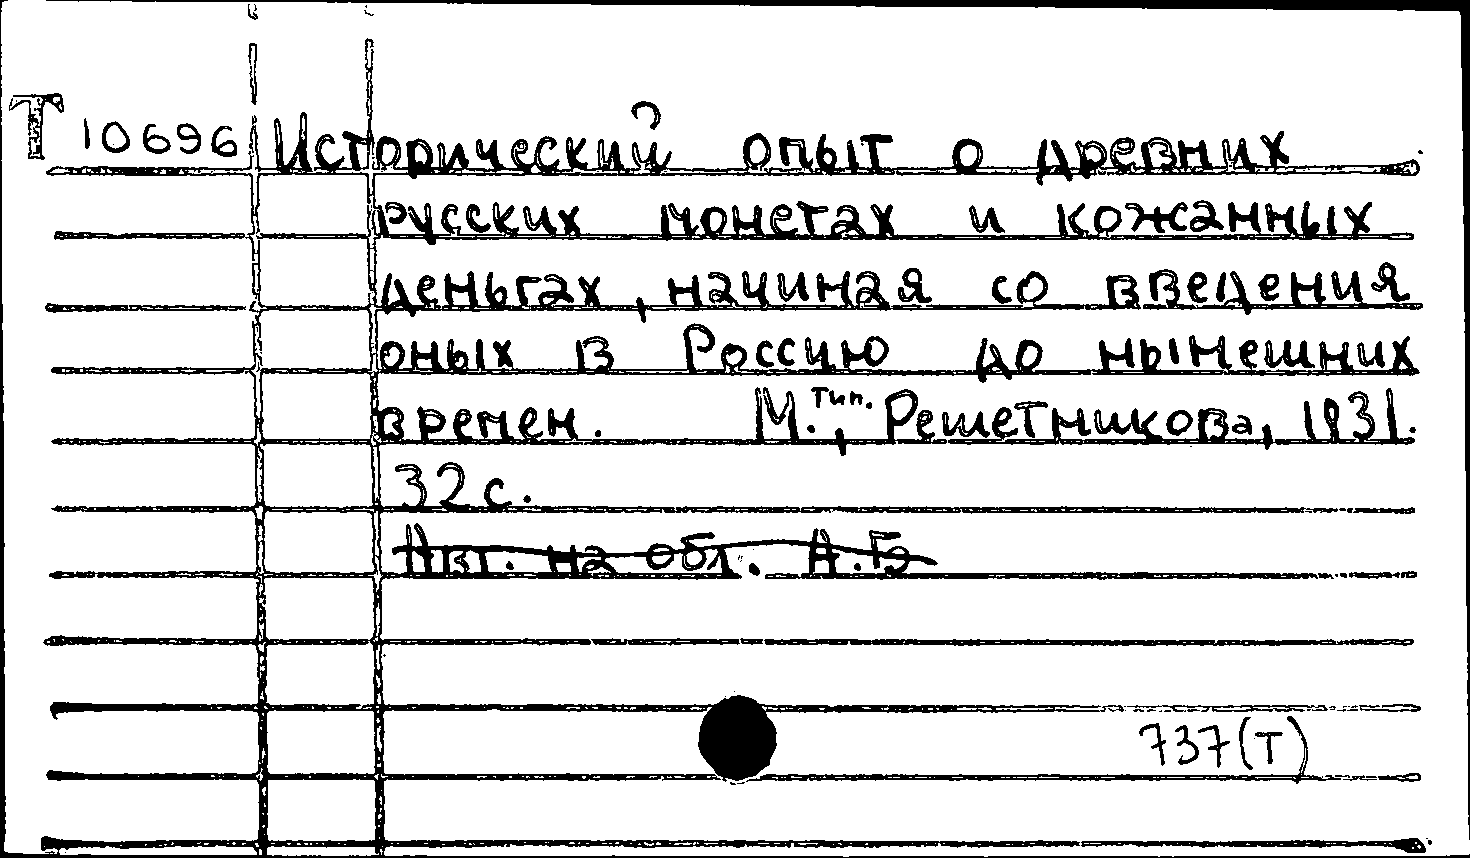 Т 10696 Исторический опыт о древних
русских монетах и кожанных
деньгах, начиная со введения
оных в Россию до нынешних
времен. М., тип. Решетникова, 1831.
32 с.
Авт. на обл. А.Б
737(Т)